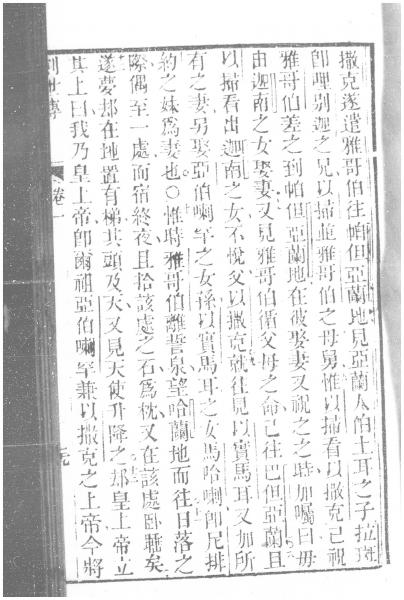 撒克遂遣雅哥伯往帕但亞蘭地見亞蘭人伯土耳之子拉班
卽哩別迦之兄以掃並雅哥伯之母舅惟以掃看以撒克已祝
雅哥伯差之到帕但亞蘭地在彼娶妻又視之之時加囑曰毋
由迦南之女娶妻又見雅哥伯循父母之命已往巴但亞蘭且
以掃看出迦南之女不悅父以撒克就往見以實馬耳又加所
有之妻另娶亞伯喇罕之女孫以實馬耳之女馬哈喇卽尼排
約之妹爲妻也○惟時雅哥伯離誓泉望哈蘭地而往日落之
際偶至一處而宿終夜且拾該處之石爲枕又在該處卧睡矣
遂夢却在地置有梯其頭及天又見天使升降之却皇上帝立
其上曰我乃皇上帝卽爾祖亞伯喇罕兼以撒克之上帝今將
創世傳
卷一